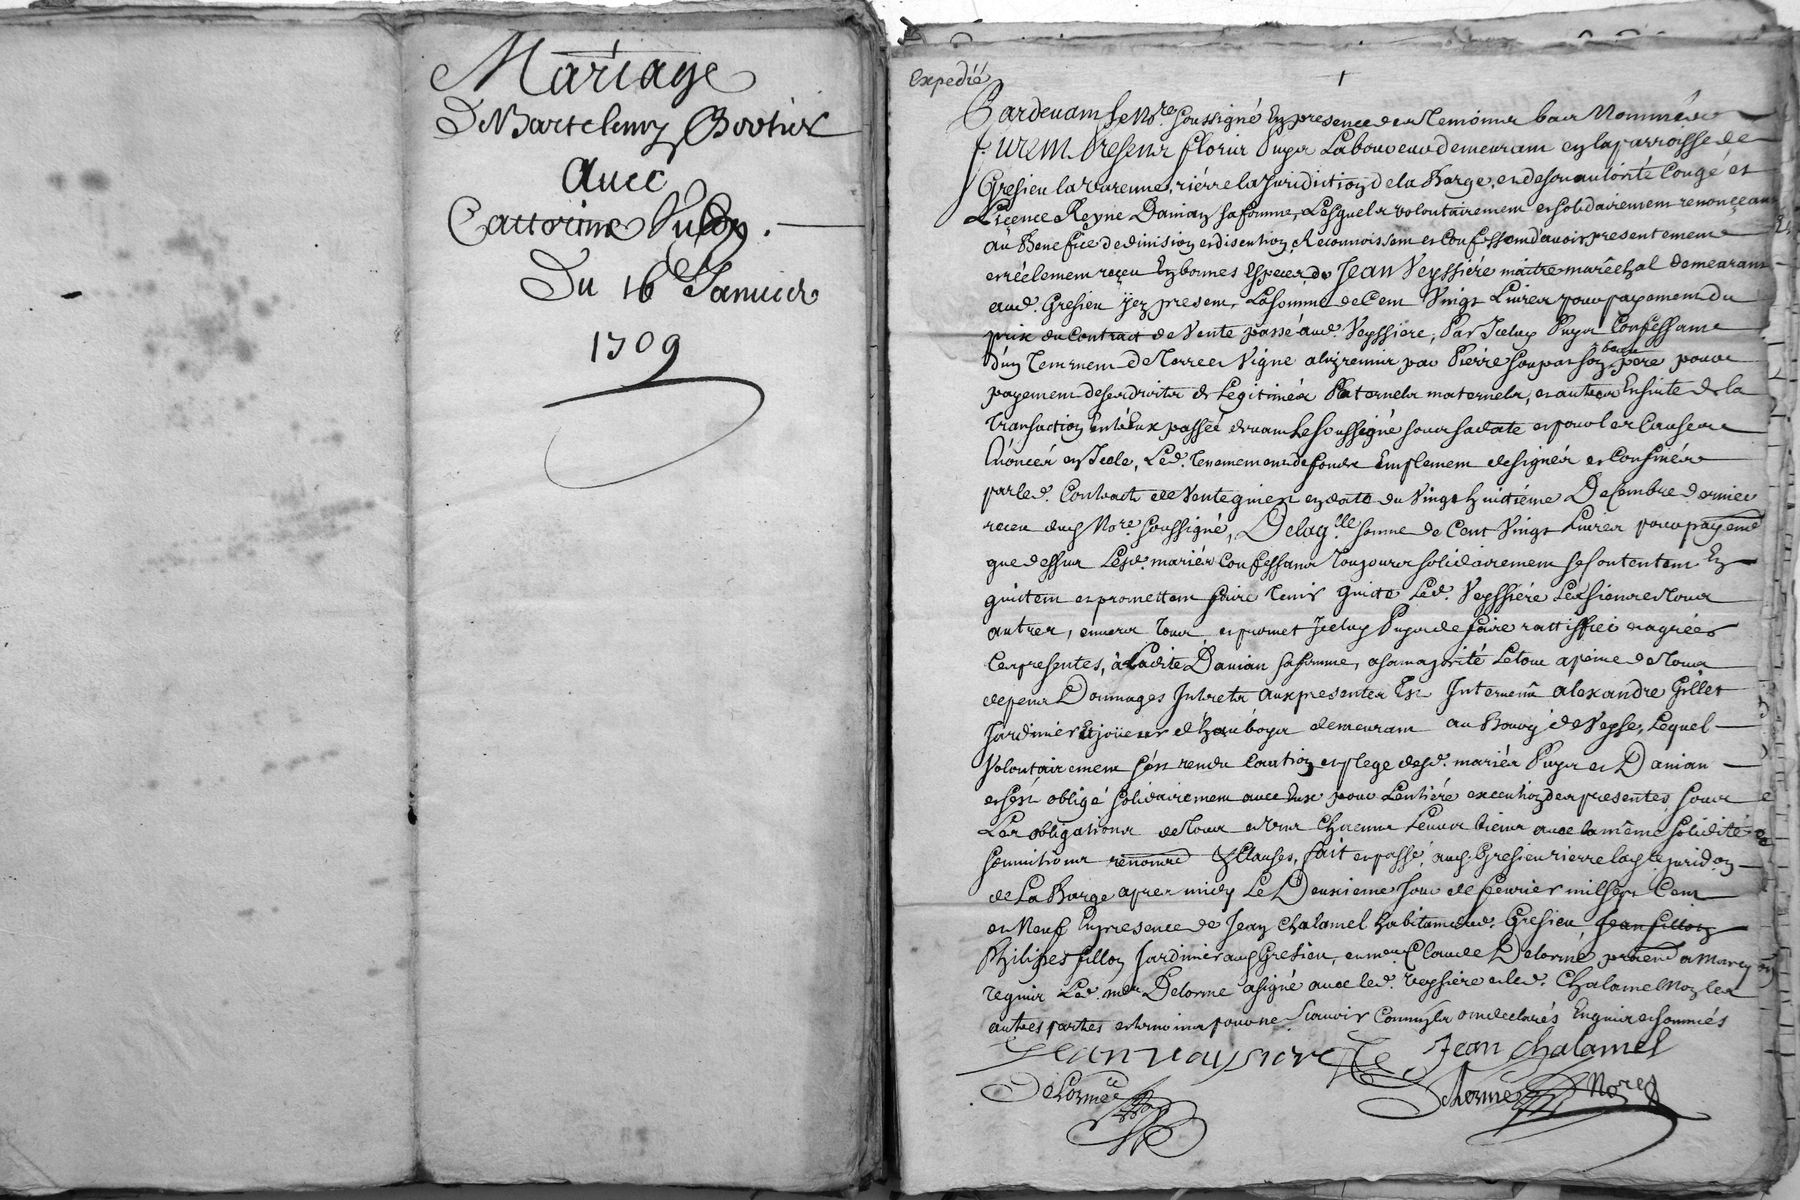 Mariage
De Bartelemy Bootier
Avec
Cattorine
Du 16 Janvier
1709
Expedié
1
Pardevant le Nore. soussigné En presence des temoins bas Nommés
furent Presens floris Puys Laboureur demeurant en la parroisse de
Gresieu la varenne, riérre la Juridiction de la Barge, et de son autorité Congé et
Licence Reyne Damian sa femme, Lesquels volontairement et solidairement renonceans
au Benefice de division et discution, Reconnoissent et Confessent d'avoir presentement
et réelement reçeu En bonnes Especes de Jean Veyssiére maitre maréchal demeurant
aud. Gresieu ÿcy present, La somme de Cent Vingt Livres pour payement du
prix du Contract de Vente passé aud. Veyssiere, Par Iceluy Puys Confessant
d'un tennement de terre et Vigne a luy remis par Pierre son pere pour
payement de ses droits de Legitimés Paternels maternels, et autres Ensuite de la
transaction entr'Eux passée devant le soussigné sous sa datte et pour les Causes
Enoncés en Icelle, Led. tenement de fonds Emplement designés et Confinés
par led. Contract de Vente qui est en datte du Vingt huittiéme Decembre dernier
receu dud. Nore. soussigné, De laqlle. somme de Cent Vingt Livres pour payemt
que dessus Lesd. mariés Confessans toujours solidairement se contentent En
quittent et promettent faire tenir quitte Led. Veyssiére Les siens et tous
autres, envers tous, et promet Iceluy Puys de faire rattiffier et agréer
Ces presentes, à Ladite Damian sa femme, a sa majorité Le tout a peine de tous
depens Dommages Intrets aux presentes Est Intervenu alexandre Gillet
Jardinier Et joüeur d'hauboys demeurant au Bourg de Veyse, Lequel
Volontairement s'est rendu Caution et plege desd. mariés Puys et Damian
et s'est obligé solidairement avec Eux pour L'entiére execution des presentes, sous
Les obligations de tous et Uns Chacuns Leurs biens avec la même solidité
soumitions renoncd & Clauses, fait et passé aud. Gresieu rierre lad. juridon
de La Barge apres midy Le Deuxieme Jour de fevrier mil sept Cent
et Neuf En presence de Jean Chalamel habitant dud. Gresieu Jean fillon
Philipes fillon Jardinier aud Gresieu, et me. Claude Delorme,
requis Led. me. Delorme a signé avec led. veyssiere et led. Chalamel Non les
autres partes et temoins pour ne sçavoir Comm'ils ont declarés Enquis et sommés
Jean vaysiere Jean chalamel
Delorme Delorme Nore